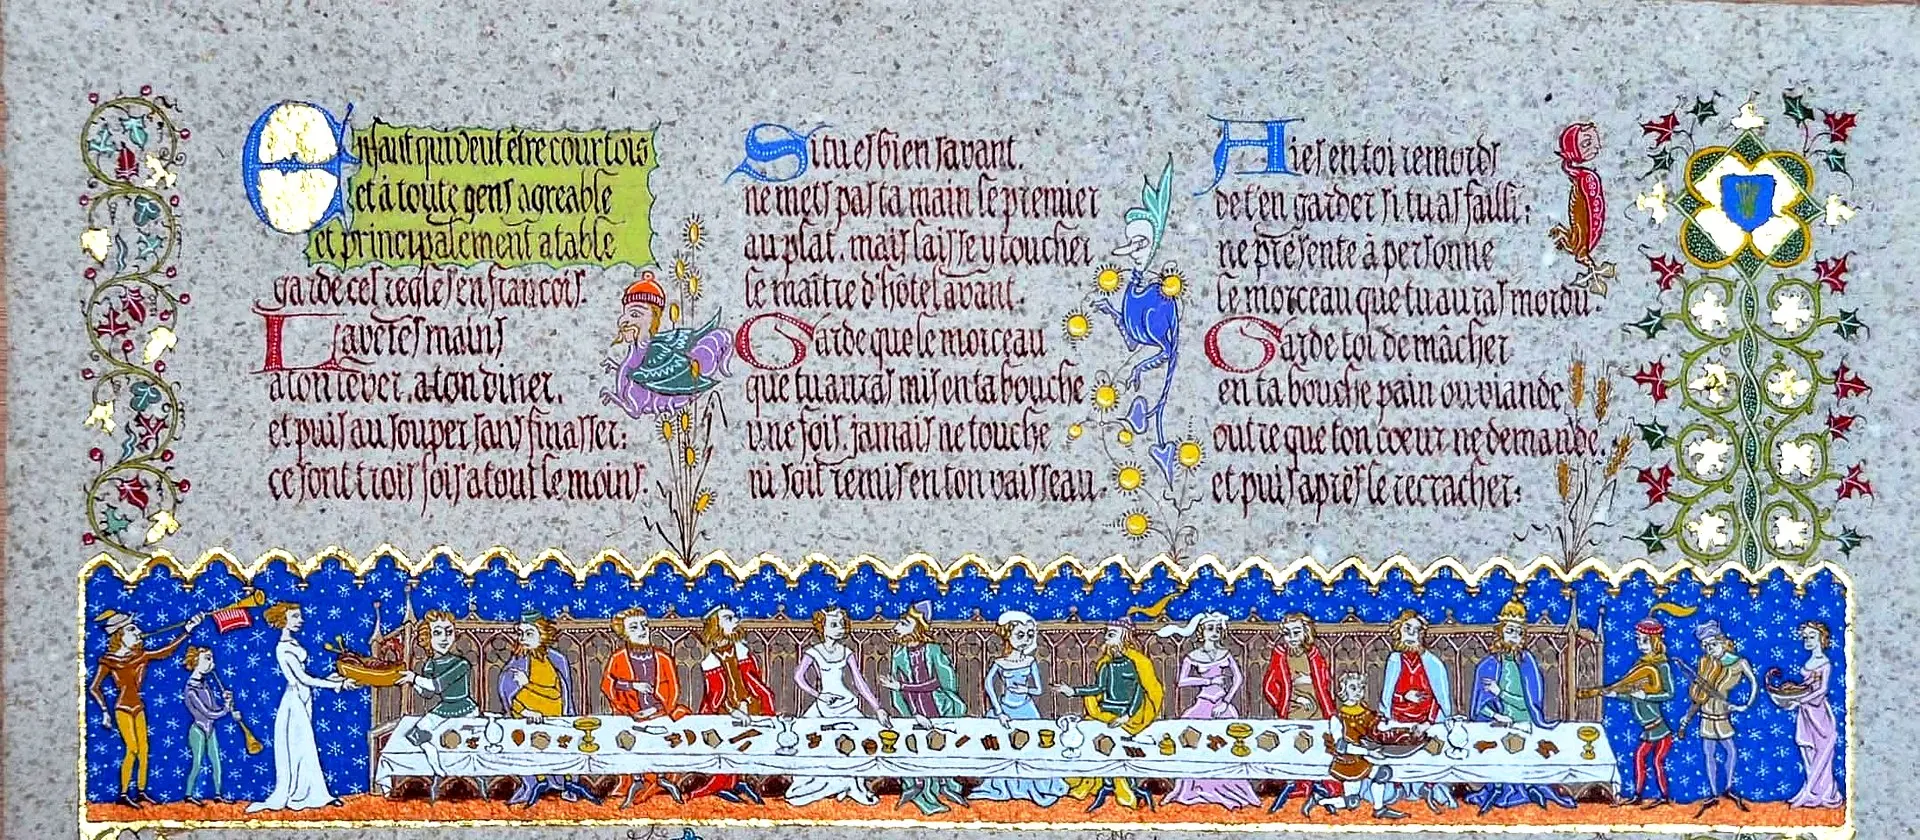 Enfant qui veut être courtois
et à toute gens agreable
et principalement a table
garde ces regles en francois.
Lave tes mains
a ton lever. a ton diner.
et puis au souper sans finasser:
ce sont trois fois a tout le moins.
Si tu es bien savant.
ne mets pas ta main le premier
au plat. mais laisse y toucher
le maître d'hôtel avant.
Garde que le morceau
que tu auras mis en ta bouche
une fois. jamais ne touche
ni soit remis en ton vaisseau.
Aies en toi remords
de t'en garder si tu as failli:
ne présente à personne
le morceau que tu auras mordu.
Garde toi de mâcher
en ta bouche pain ou viande
outre que ton coeur ne demande.
et puis après le recracher: